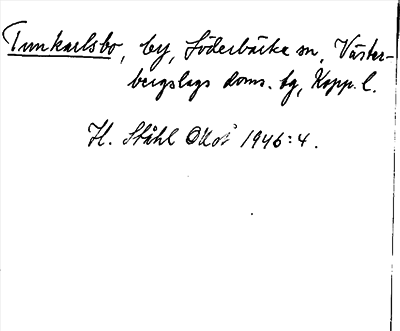 Tunkarlsbo, by, Söderbärke sn, Väster-
bergslags doms. tg, Kopp. l.
H. Ståhl 1946:4.